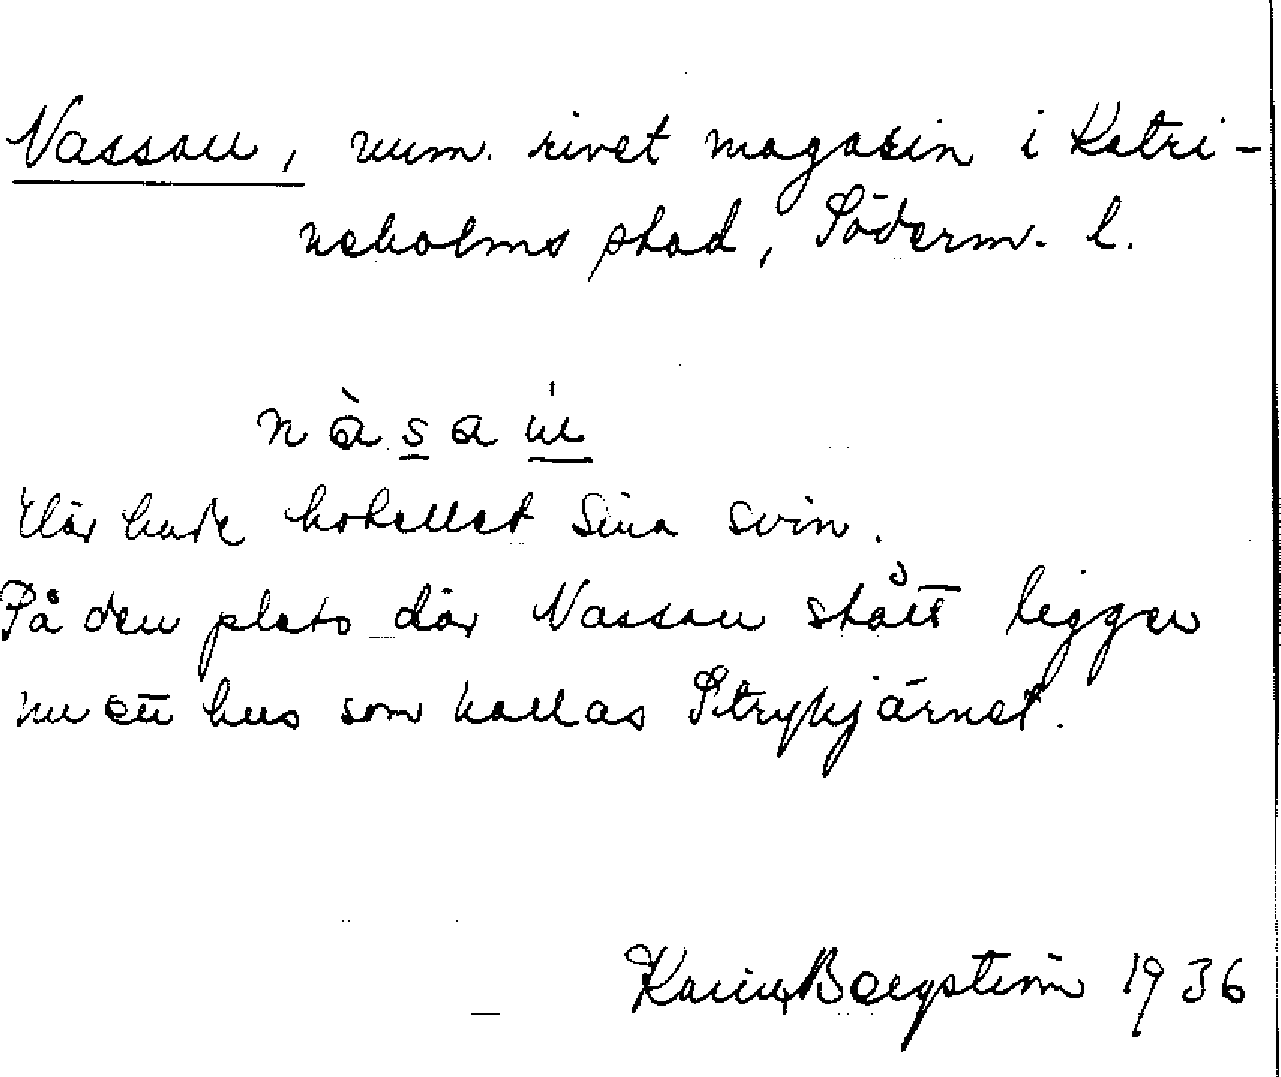 Nassau, num. rivet magasin i Katri-
neholms stad, Söderm. l.
nàsaú
Där hade hotellet sina svin.
På den plats där Nassau stått ligger
nu ett hus som kallas Strykjärnet.
Karin Bergström 1936